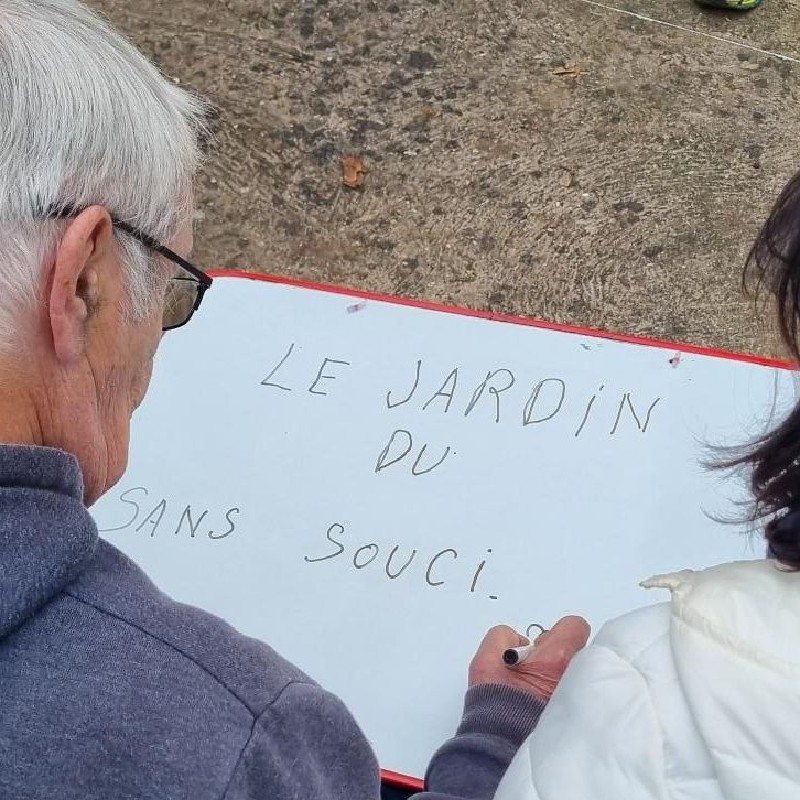 LE JARDIN
DU
SANS SOUCI.